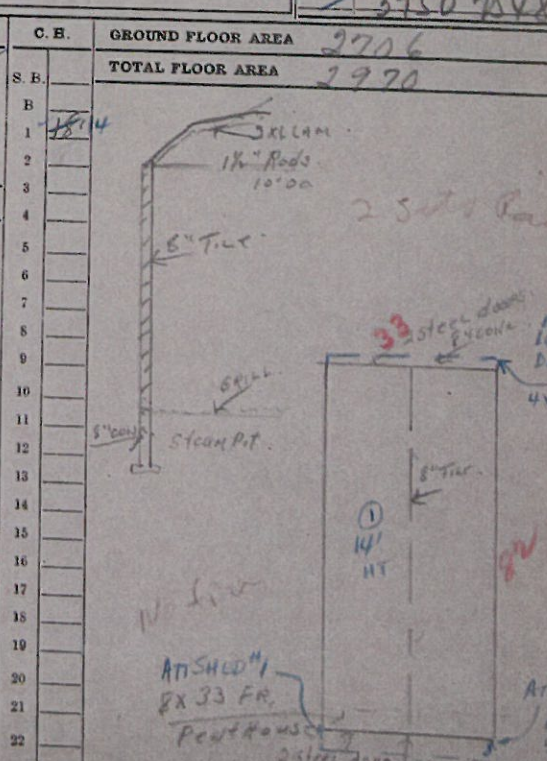 C. H.
GROUND FLOOR AREA 2706
TOTAL FLOOR AREA 2970
S. B.
B
1 14
2
3
4
5
6
7
8
9
10
11
12
13
14
15
16
17
18
19
20
21
22
3X6 LAM
1½" Rods
10'00
2 Sets
8" TILT
33
2 steel doors
8" CONC
GRILL
8" CONC
Steam Pit.
8" TILT
1
14'
HT
82
ATT SHED #1
8 X 33 FR,
Pent House
2 steel